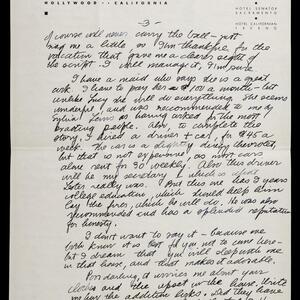 HOLLYWOOD CALIFORNIA
HOTEL SENATOR
SACRAMENTO
HOTEL CALIFORNIAN
FRESNO
-3-
of course will never carry the ball - just
nag me a little, so I'm thankful for the
vacation that gave me a clearer sight of
the script. I will manage it, I'm sure.
I have a maid who says she is a great
cook. I have to pay her $100 a month - but
unlike Lucy she will do everything. She seems
and was recommended to me by
Sylvia as having worked for the most
people. Also, to complete the
story, I hired a driver + car, for $45 a
week. The car is a Chevrolet,
but that is not expensive, as most cars
alone rent for 30 weekly. Also this driver
will be my secretary which is
Later really was. But this one has 3 years
college education, which should help him
the pros, which he will do. He was also
recommended and has a splendid reputation
for honesty.
I don't want to say it - because we
both know it is best if you not to come here -
but I dream that you will sleep with me
in that house, and that makes it adorable.
Poor darling, it worries me about your
and the upset in the house. Write
me how the addition looks. Did they have